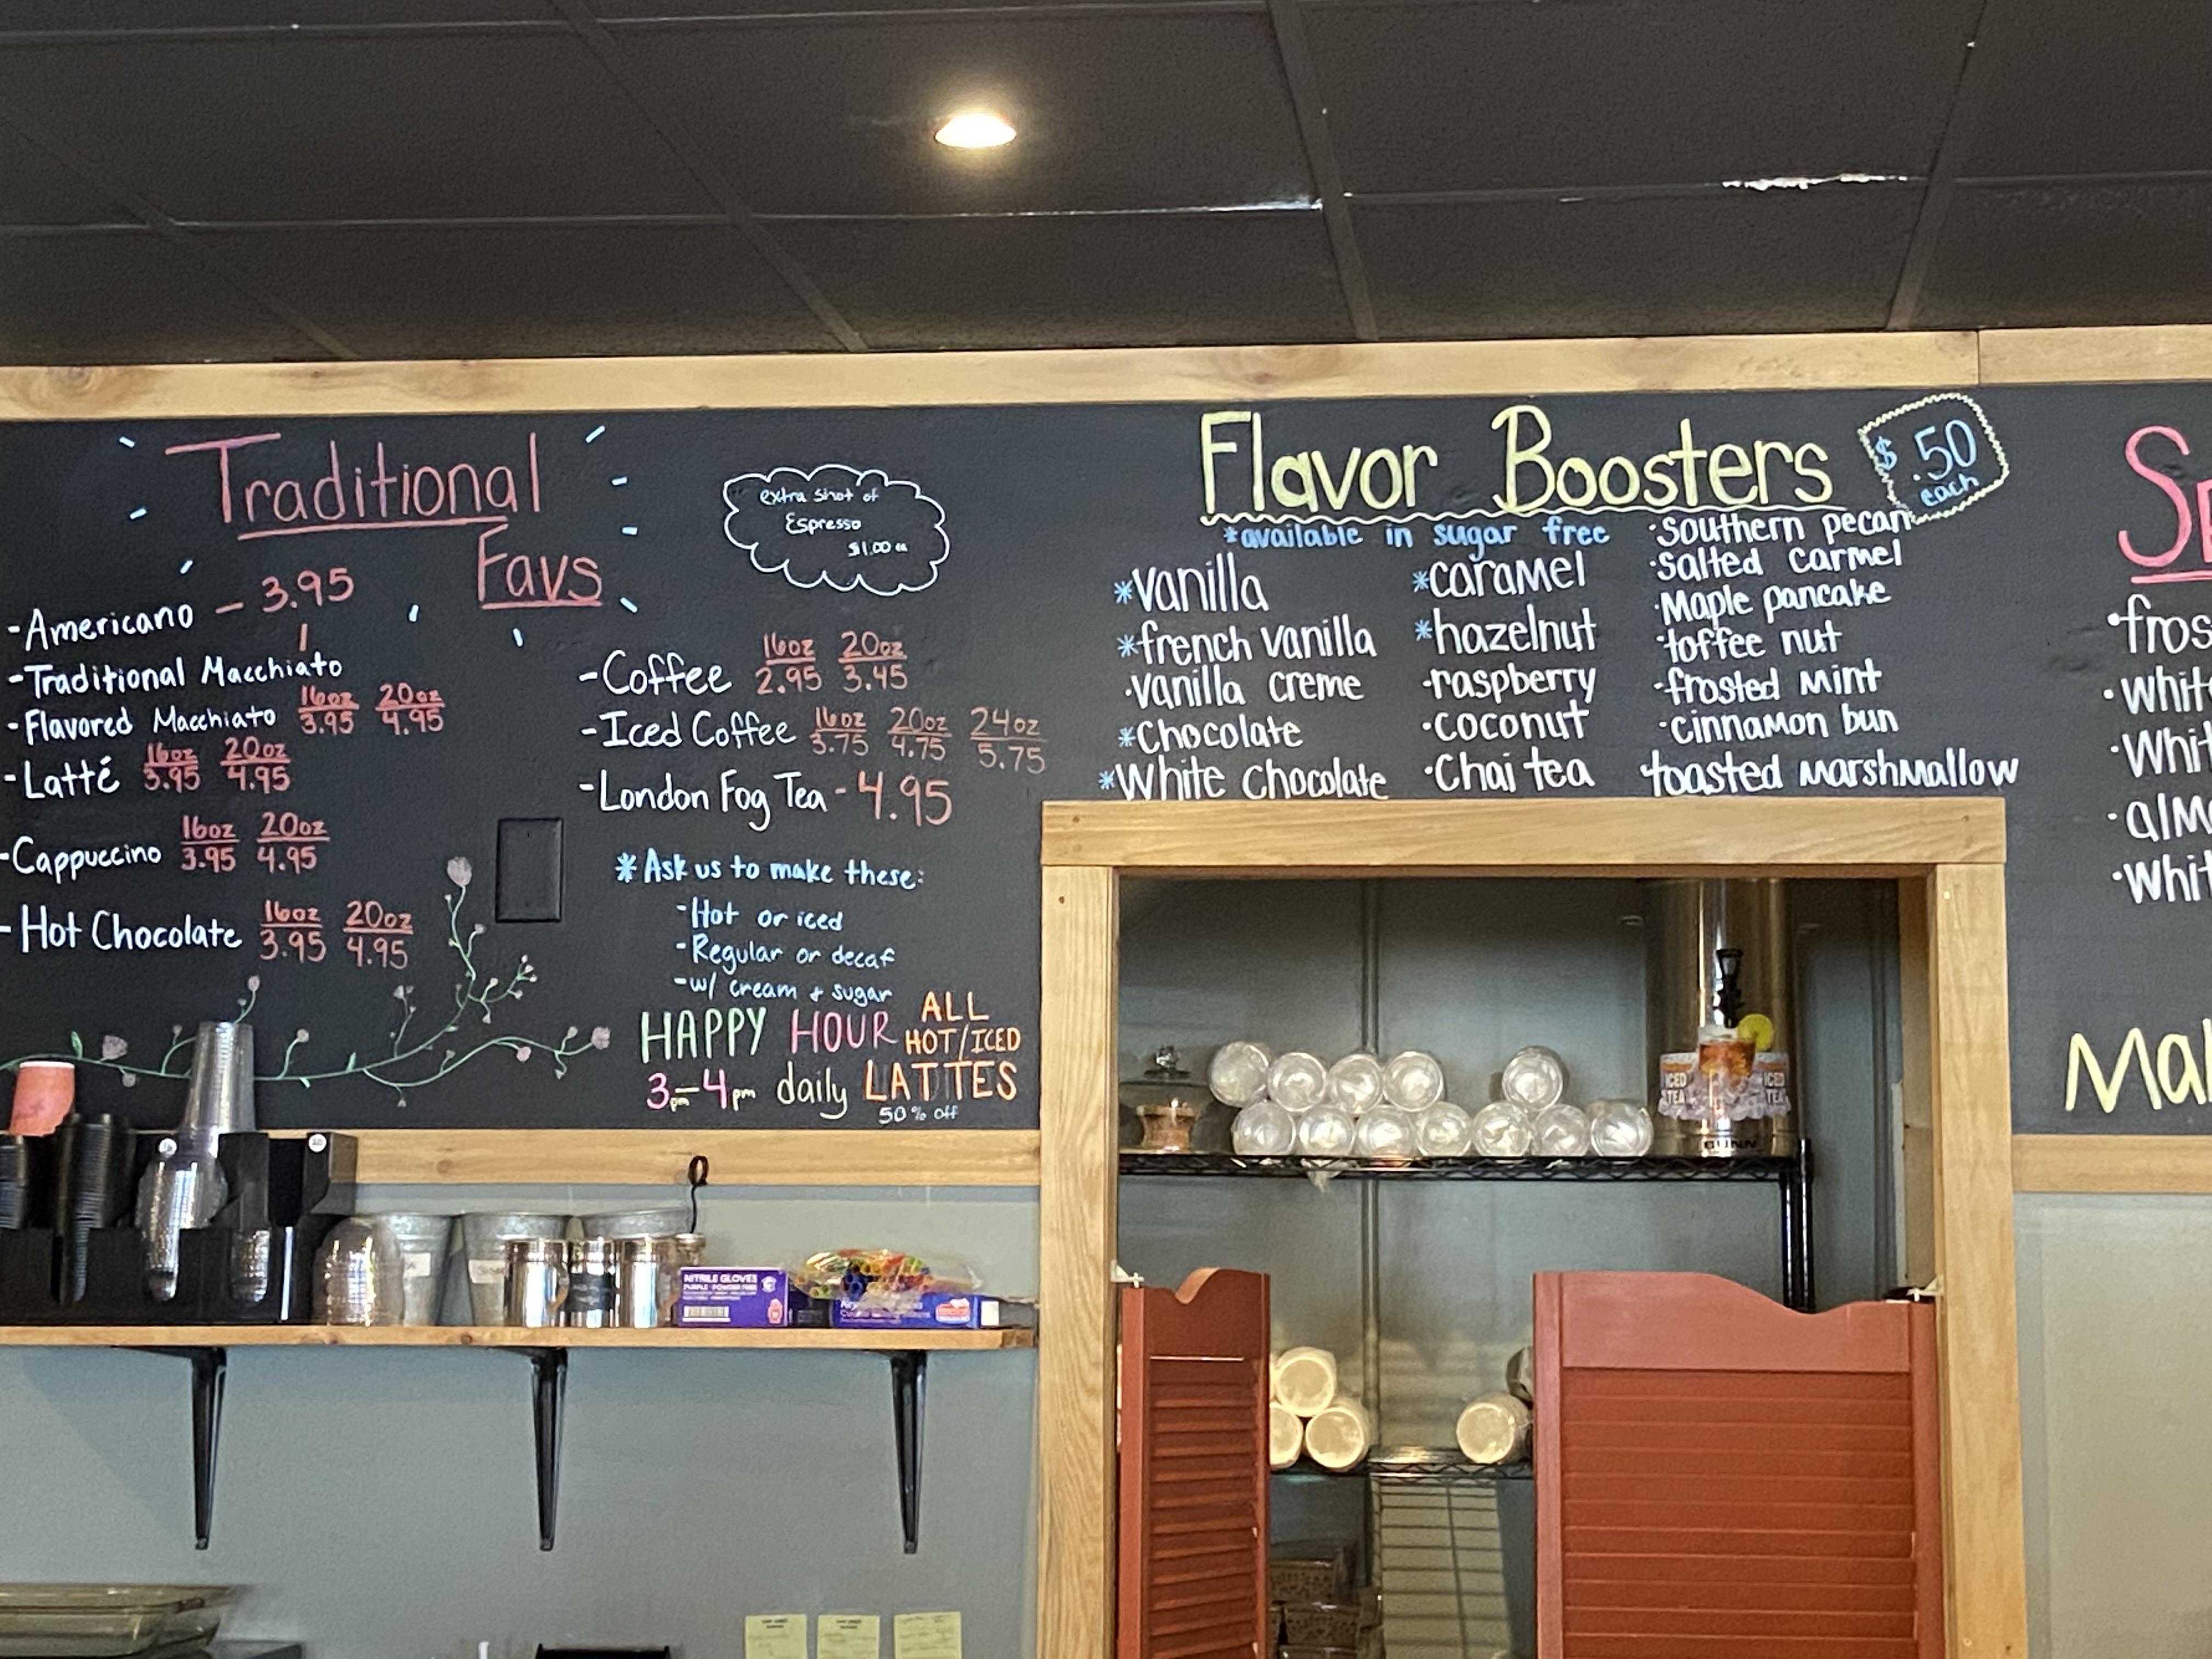 Traditional
Favs
-Americano - 3.95
-Traditional Macchiato
-Flavored Macchiato 16oz 3.95 20oz 4.95
-Latté 16oz 3.95 20oz 4.95
-Cappuccino 16oz 3.95 20oz 4.95
-Hot Chocolate 16oz 3.95 20oz 4.95
extra shot of
Espresso
$1.00 ea
-Coffee 16oz 2.95 20oz 3.45
-Iced Coffee 16oz 3.75 20oz 4.75 24oz 5.75
-London Fog Tea - 4.95
*Ask us to make these:
-Hot or iced
-Regular or decaf
-w/ cream + sugar
HAPPY HOUR
3pm-4pm daily
ALL
HOT/ICED
LATTES
50% off
Flavor Boosters
$.50
each
*available in sugar free
*Vanilla
*french vanilla
·Vanilla creme
*Chocolate
*White Chocolate
*caramel
*hazelnut
·raspberry
·coconut
·Chai tea
·Southern pecan
·Salted Carmel
·Maple pancake
·toffee nut
·frosted mint
·cinnamon bun
toasted marshmallow
ICED
TEA
ICED
TEA
BUNN
NITRILE GLOVES
PURPLE · POWDER FREE